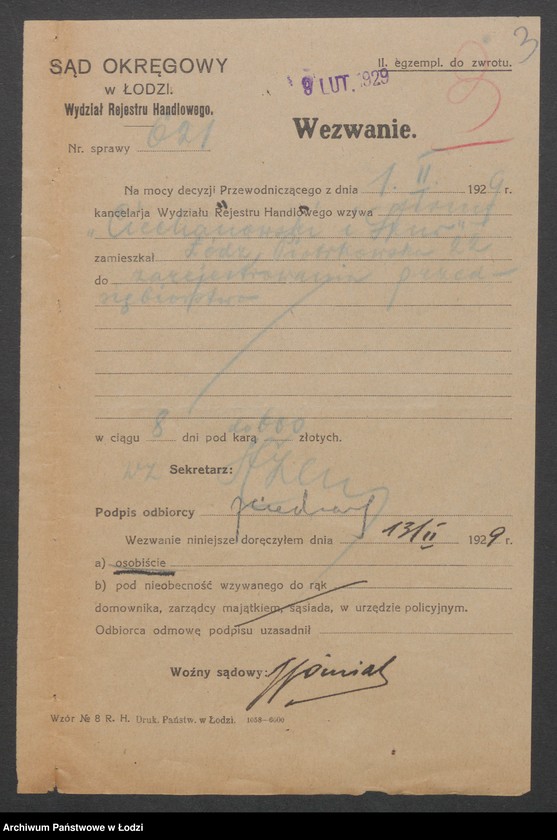 SĄD OKRĘGOWY
w ŁODZI.
Wydział Rejestru Handlowego.
II. egzempl. do zwrotu.
3
9 LUT. 1929
Wezwanie.
Nr. sprawy 621
Na mocy decyzji Przewodniczącego z dnia 1. II. 1929 r.
kancelarja Wydziału Rejestru Handlowego wzywa firmę
"Ciechanowski i Syn"
zamieszkał Łódź, Piotrkowska 22
do zarejestrowania przed-
siębiorstwa
w ciągu 8 dni pod karą do 600 złotych.
wz Sekretarz:
Podpis odbiorcy
Wezwanie niniejsze doręczyłem dnia 13/II 1929 r.
a) osobiście
b) pod nieobecność wzywanego do rąk
domownika, zarządcy majątkiem, sąsiada, w urzędzie policyjnym.
Odbiorca odmowę podpisu uzasadnił
Woźny sądowy:
Wzór № 8 R. H. Druk. Państw. w Łodzi. 1058-6500
Archiwum Państwowe w Łodzi